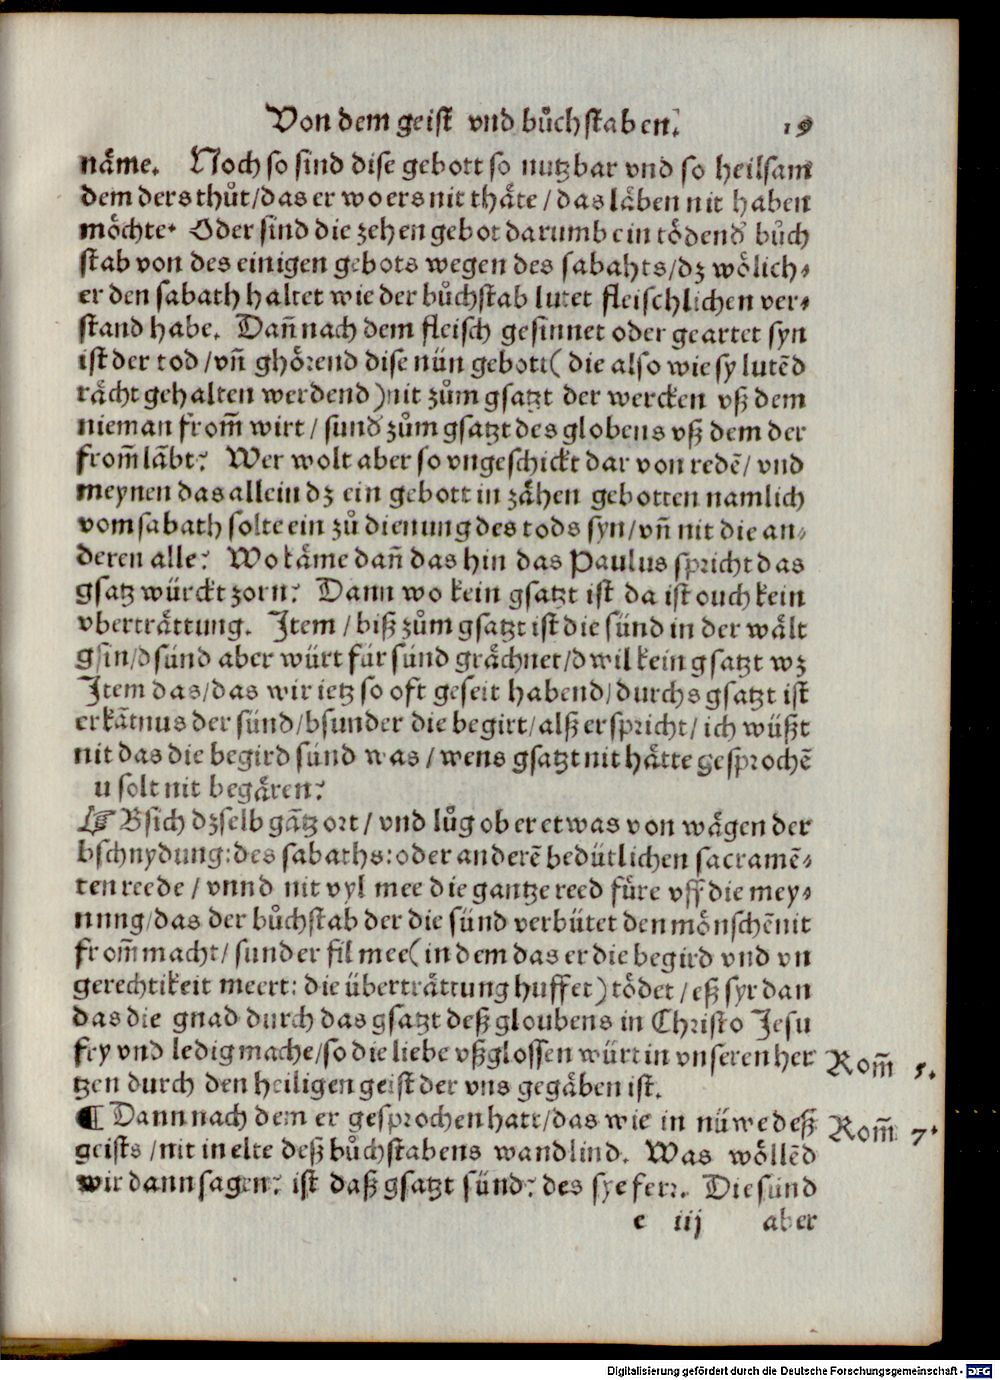 Von dem geist vnd bůchstaben. 19
näme. Noch so sind dise gebott so nutzbar vnd so heilsam
dem ders thůt/das er wo ers nit thäte/das läben nit haben
möchte. Oder sind die zehen gebot darumb ein tödend bůch
stab von des einigen gebots wegen des sabahts/dz wölich⸗
er den sabath haltet wie der bůchstab lutet fleischlichen ver⸗
stand habe. Dañ nach dem fleisch gesinnet oder geartet syn
ist der tod/vñ ghörend dise nün gebott( die also wie sy lutẽd
rächt gehalten werdend)nit zům gsatzt der wercken vß dem
nieman from̃ wirt/sund zům gsatzt des globens vß dem der
from̃ läbt? Wer wolt aber so vngeschickt dar von redẽ/vnd
meynen das allein dz ein gebott in zähen gebotten namlich
vom sabath solte ein zů dienung des tods syn/vñ nit die an⸗
deren alle? Wo käme dañ das hin das Paulus spricht das
gsatz würckt zorn? Dann wo kein gsatzt ist da ist ouch kein
vberträttung. Item/biß zům gsatzt ist die sünd in der wält
gsin/d sünd aber würt für sünd grächnet/d wil kein gsatzt wz
Item das/das wir ietz so oft geseit habend/durchs gsatzt ist
erkãtnus der sünd/bsunder die begirt/alß er spricht/ich wüßt
nit das die begird sünd was/wens gsatzt nit hätte gesprochẽ
u solt nit begären?
☞ Bsich dzselb gãtz ort/vnd lůg ob er etwas von wägen der
bschnydung:des sabaths:oder anderẽ bedütlichen sacramẽ⸗
ten reede/vnnd nit vyl mee die gantze reed füre vff die mey⸗
nung/das der bůchstab der die sünd verbütet den mönschẽ nit
from̃ macht/sunder fil mee(in dem das er die begird vnd vn
gerechtikeit meert: die überträttung huffet)tödet/eß syr dan
das die gnad durch das gsatzt deß gloubens in Christo Jesu
fry vnd ledig mache/so die liebe vßglossen würt in vnseren her
tzen durch den heiligen geist der vns gegäben ist.
Rom̃ 5.
¶ Dann nach dem er gesprochen hatt/das wie in nüwe deß
Rom̃ 7.
geists/nit in elte deß bůchstabens wandlind. Was wöllẽd
wir dann sagen? ist daß gsatzt sünd? des sye ferr. Die sünd
e iij aber
Digitalisierung gefördert durch die Deutsche Forschungsgemeinschaft - DFG